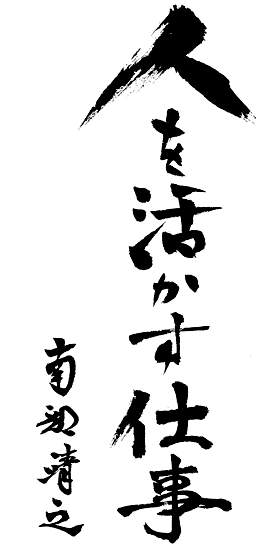 人を活かす仕事
南部靖之